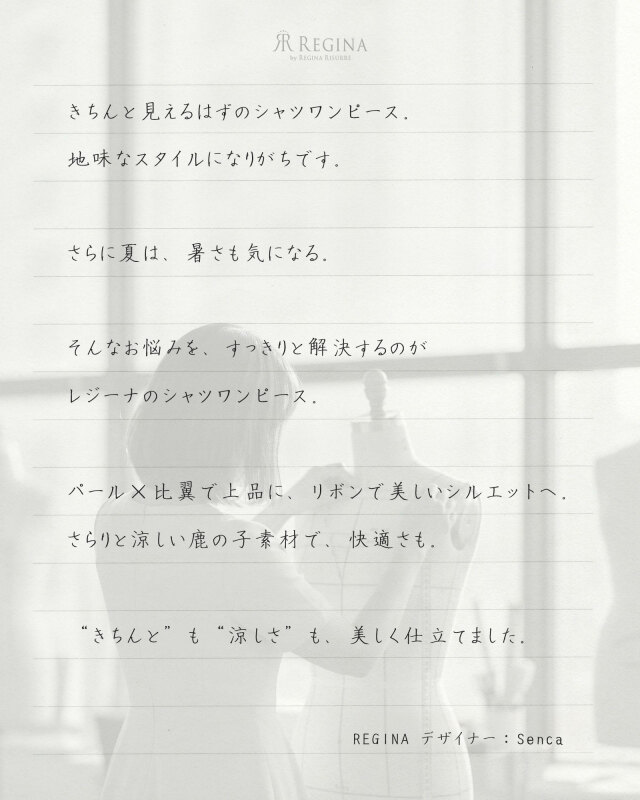 REGINA
by REGINA RISURRE
きちんと見えるはずのシャツワンピース.
地味なスタイルになりがちです。
さらに夏は、暑さも気になる。
そんなお悩みを、すっきりと解決するのが
レジーナのシャツワンピース.
パール×比翼で上品に、リボンで美しいシルエットへ.
さらりと涼しい鹿の子素材で、快適さも。
“きちんと”も“涼しさ”も、美しく仕立てました.
REGINA デザイナー：Senca